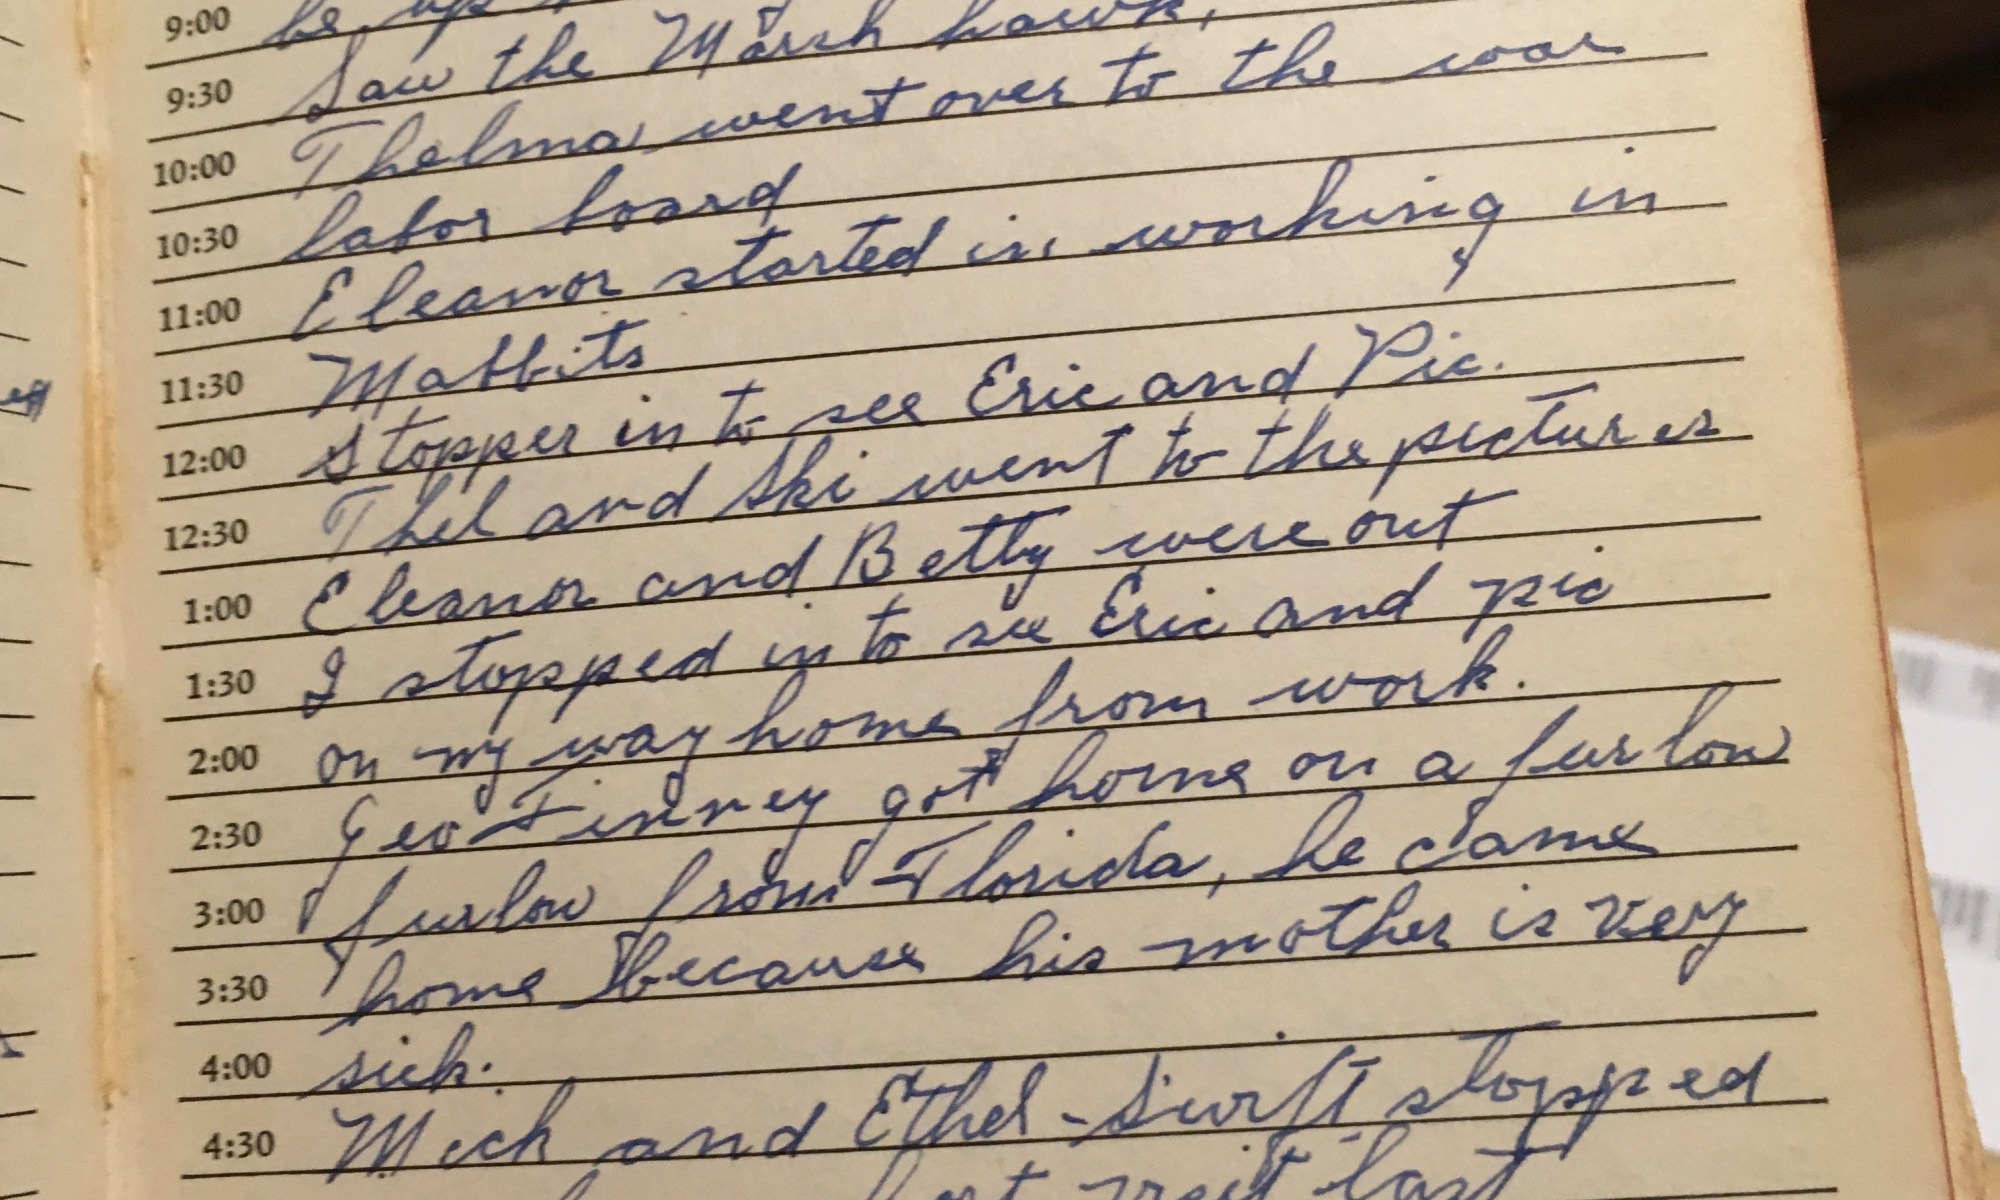 9:00 be up
9:30 Saw the March hawk,
10:00 Thelma went over to the war
10:30 labor board
11:00 Eleanor started in working in
11:30 Mabbits
12:00 Stopper in to see Eric and Pic.
12:30 Thel and Ski went to the pictures
1:00 Eleanor and Betty were out
1:30 I stopped in to see Eric and pic
2:00 on my way home from work.
2:30 Geo Finney got home on a furlow
3:00 furlow from Florida, he came
3:30 home because his mother is very
4:00 sick.
4:30 Mick and Ethel - Swift stopped
visit last